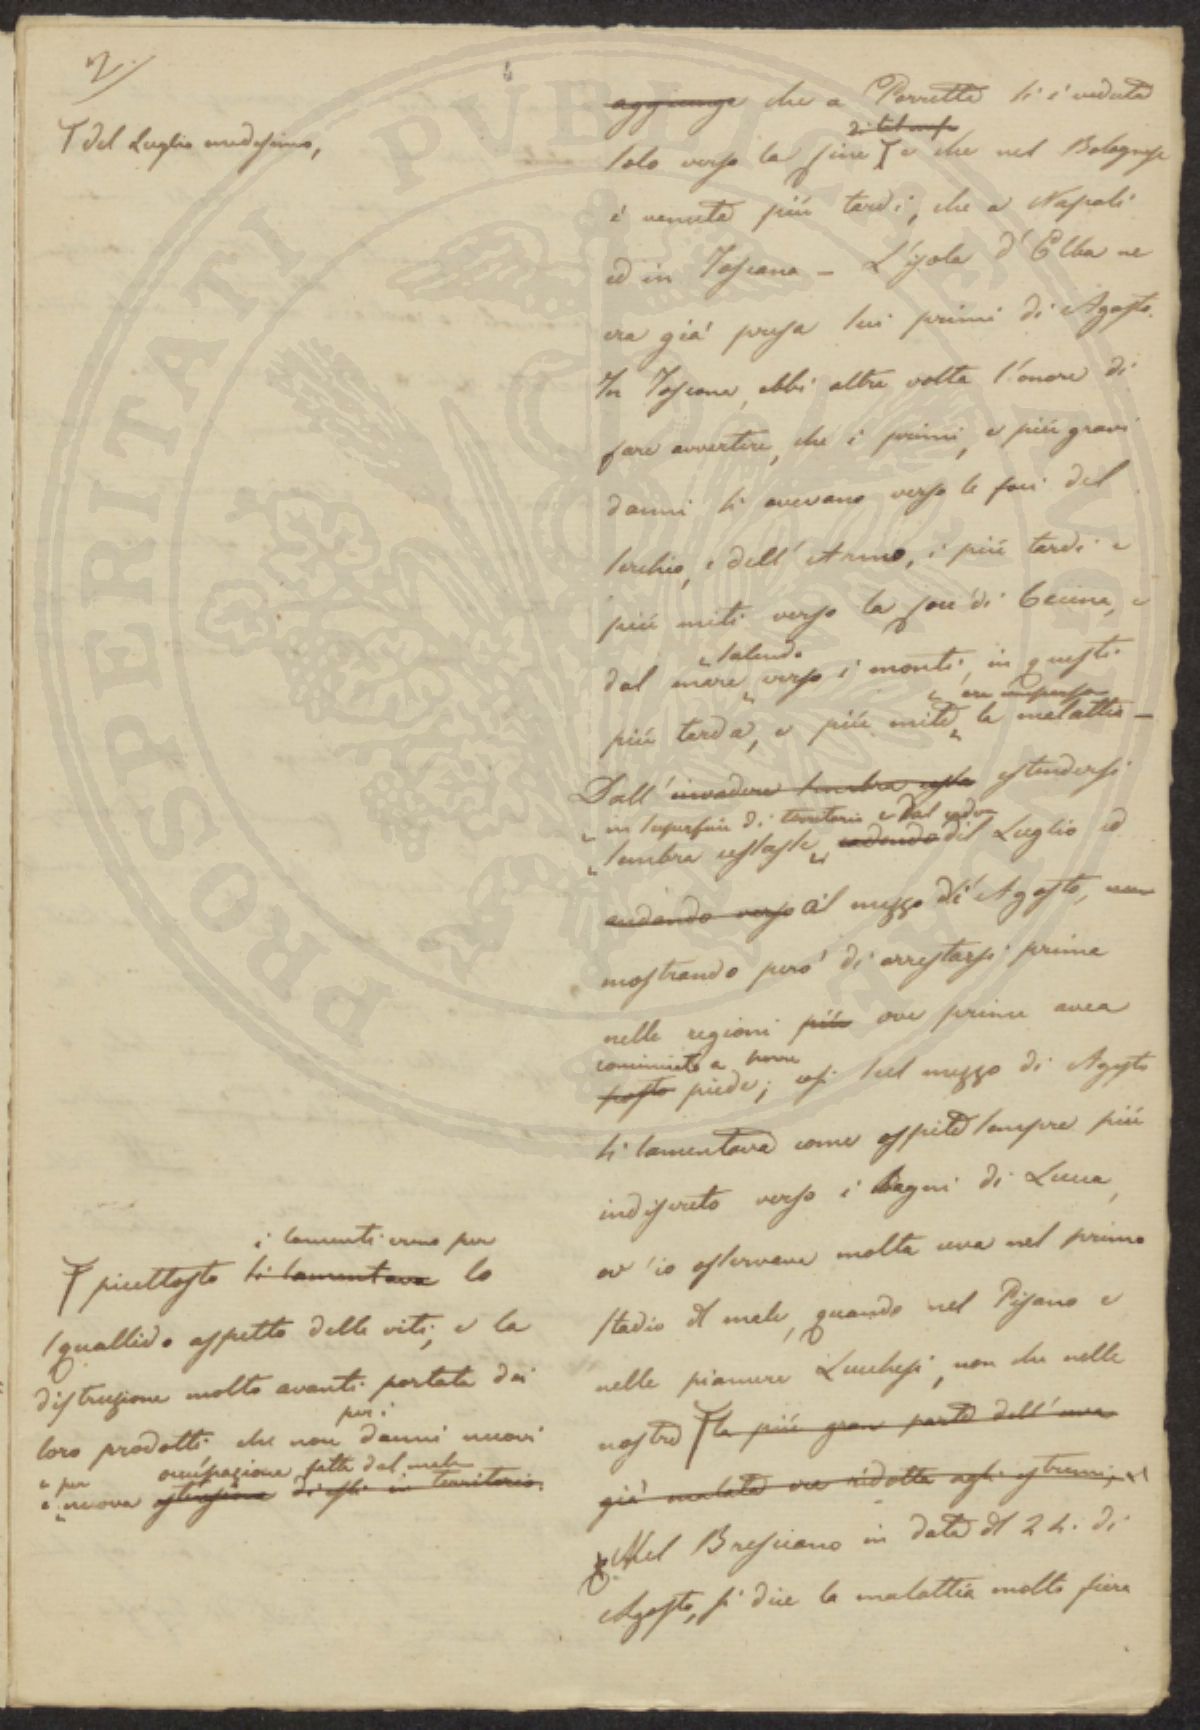 2.
T del Luglio medesimo,
aggiunge che a Porretta si è veduta
di tal mese
solo verso la fine T e che nel Bolognese
è venuta più tardi, che a Napoli
ed in Toscana - L'isola d'Elba ne
era già presa sui primi di Agosto.
In Toscana, ebbi altra volta l'onore di
fare avvertire, che i primi, e più gravi
danni si avevano verso le foci del
Serchio, e dell'Arno, i più tardi e
più miti verso la foce di Cecina, e
salendo
dal mare verso i monti, in questi
era
più tarda, e più mite la malattia -
Dall'invadere sembra estendersi
in superficie di territorio e dal cader
sembra cessasse, cadendo del Luglio ed
andando verso al mezzo di Agosto, non
mostrando però di arrestarsi prima
nelle regioni più ove prima avea
cominciato a porre
posto piede; così sul mezzo di Agosto
si lamentava come ospite sempre più
indiscreto verso i Bagni di Lucca,
ov'io osservava molta uva nel primo
stadio del male, quando nel Pisano e
nelle pianure Lucchesi, non che nelle
nostre T la più gran parte dell'uva
già malata era ridotta agli estremi,
Nel Bresciano in data del 24. di
Agosto, si dice la malattia molto fiera
i lamenti erano per
T piuttosto si lamentava lo
squallido aspetto delle viti, e la
distruzione molto avanti portata dei
per i
loro prodotti che non danni nuovi
e per occupazione fatta dal male
e nuova estensione di essi in territorio.